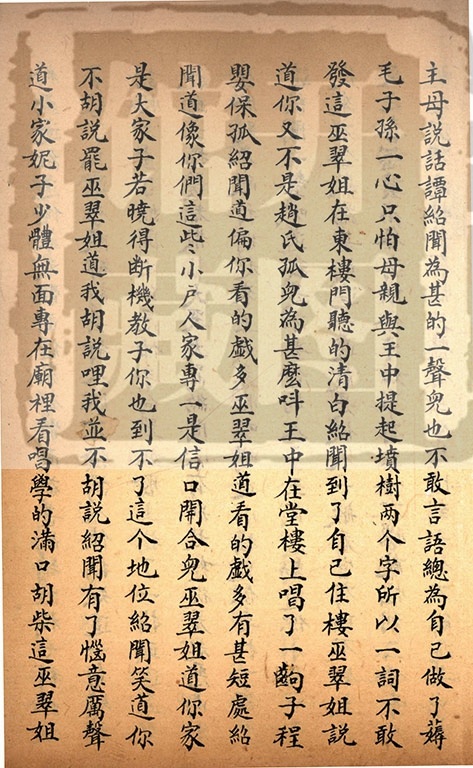 主母說話譚紹聞為甚的一聲兒也不敢言語總為自己做了薅
毛子孫一心只怕母親與王中提起墳樹两个字所以一詞不敢
發這巫翠姐在東樓門聽的清白紹聞到了自己住樓巫翠姐說
道你又不是趙氏孤兒為甚麼呌王中在堂樓上唱了一齣子程
嬰保孤紹聞道偏你看的戯多巫翠姐道看的戯多有甚短處紹
聞道像你們這些小戶人家專一是信口開合兒巫翠姐道你家
是大家子若曉得断機教子你也到不了這个地位紹聞笑道你
不胡說罷巫翠姐道我胡說哩我並不胡說紹聞有了惱意厲聲
道小家妮子少體無面專在廟裡看唱學的滿口胡柴這巫翠姐